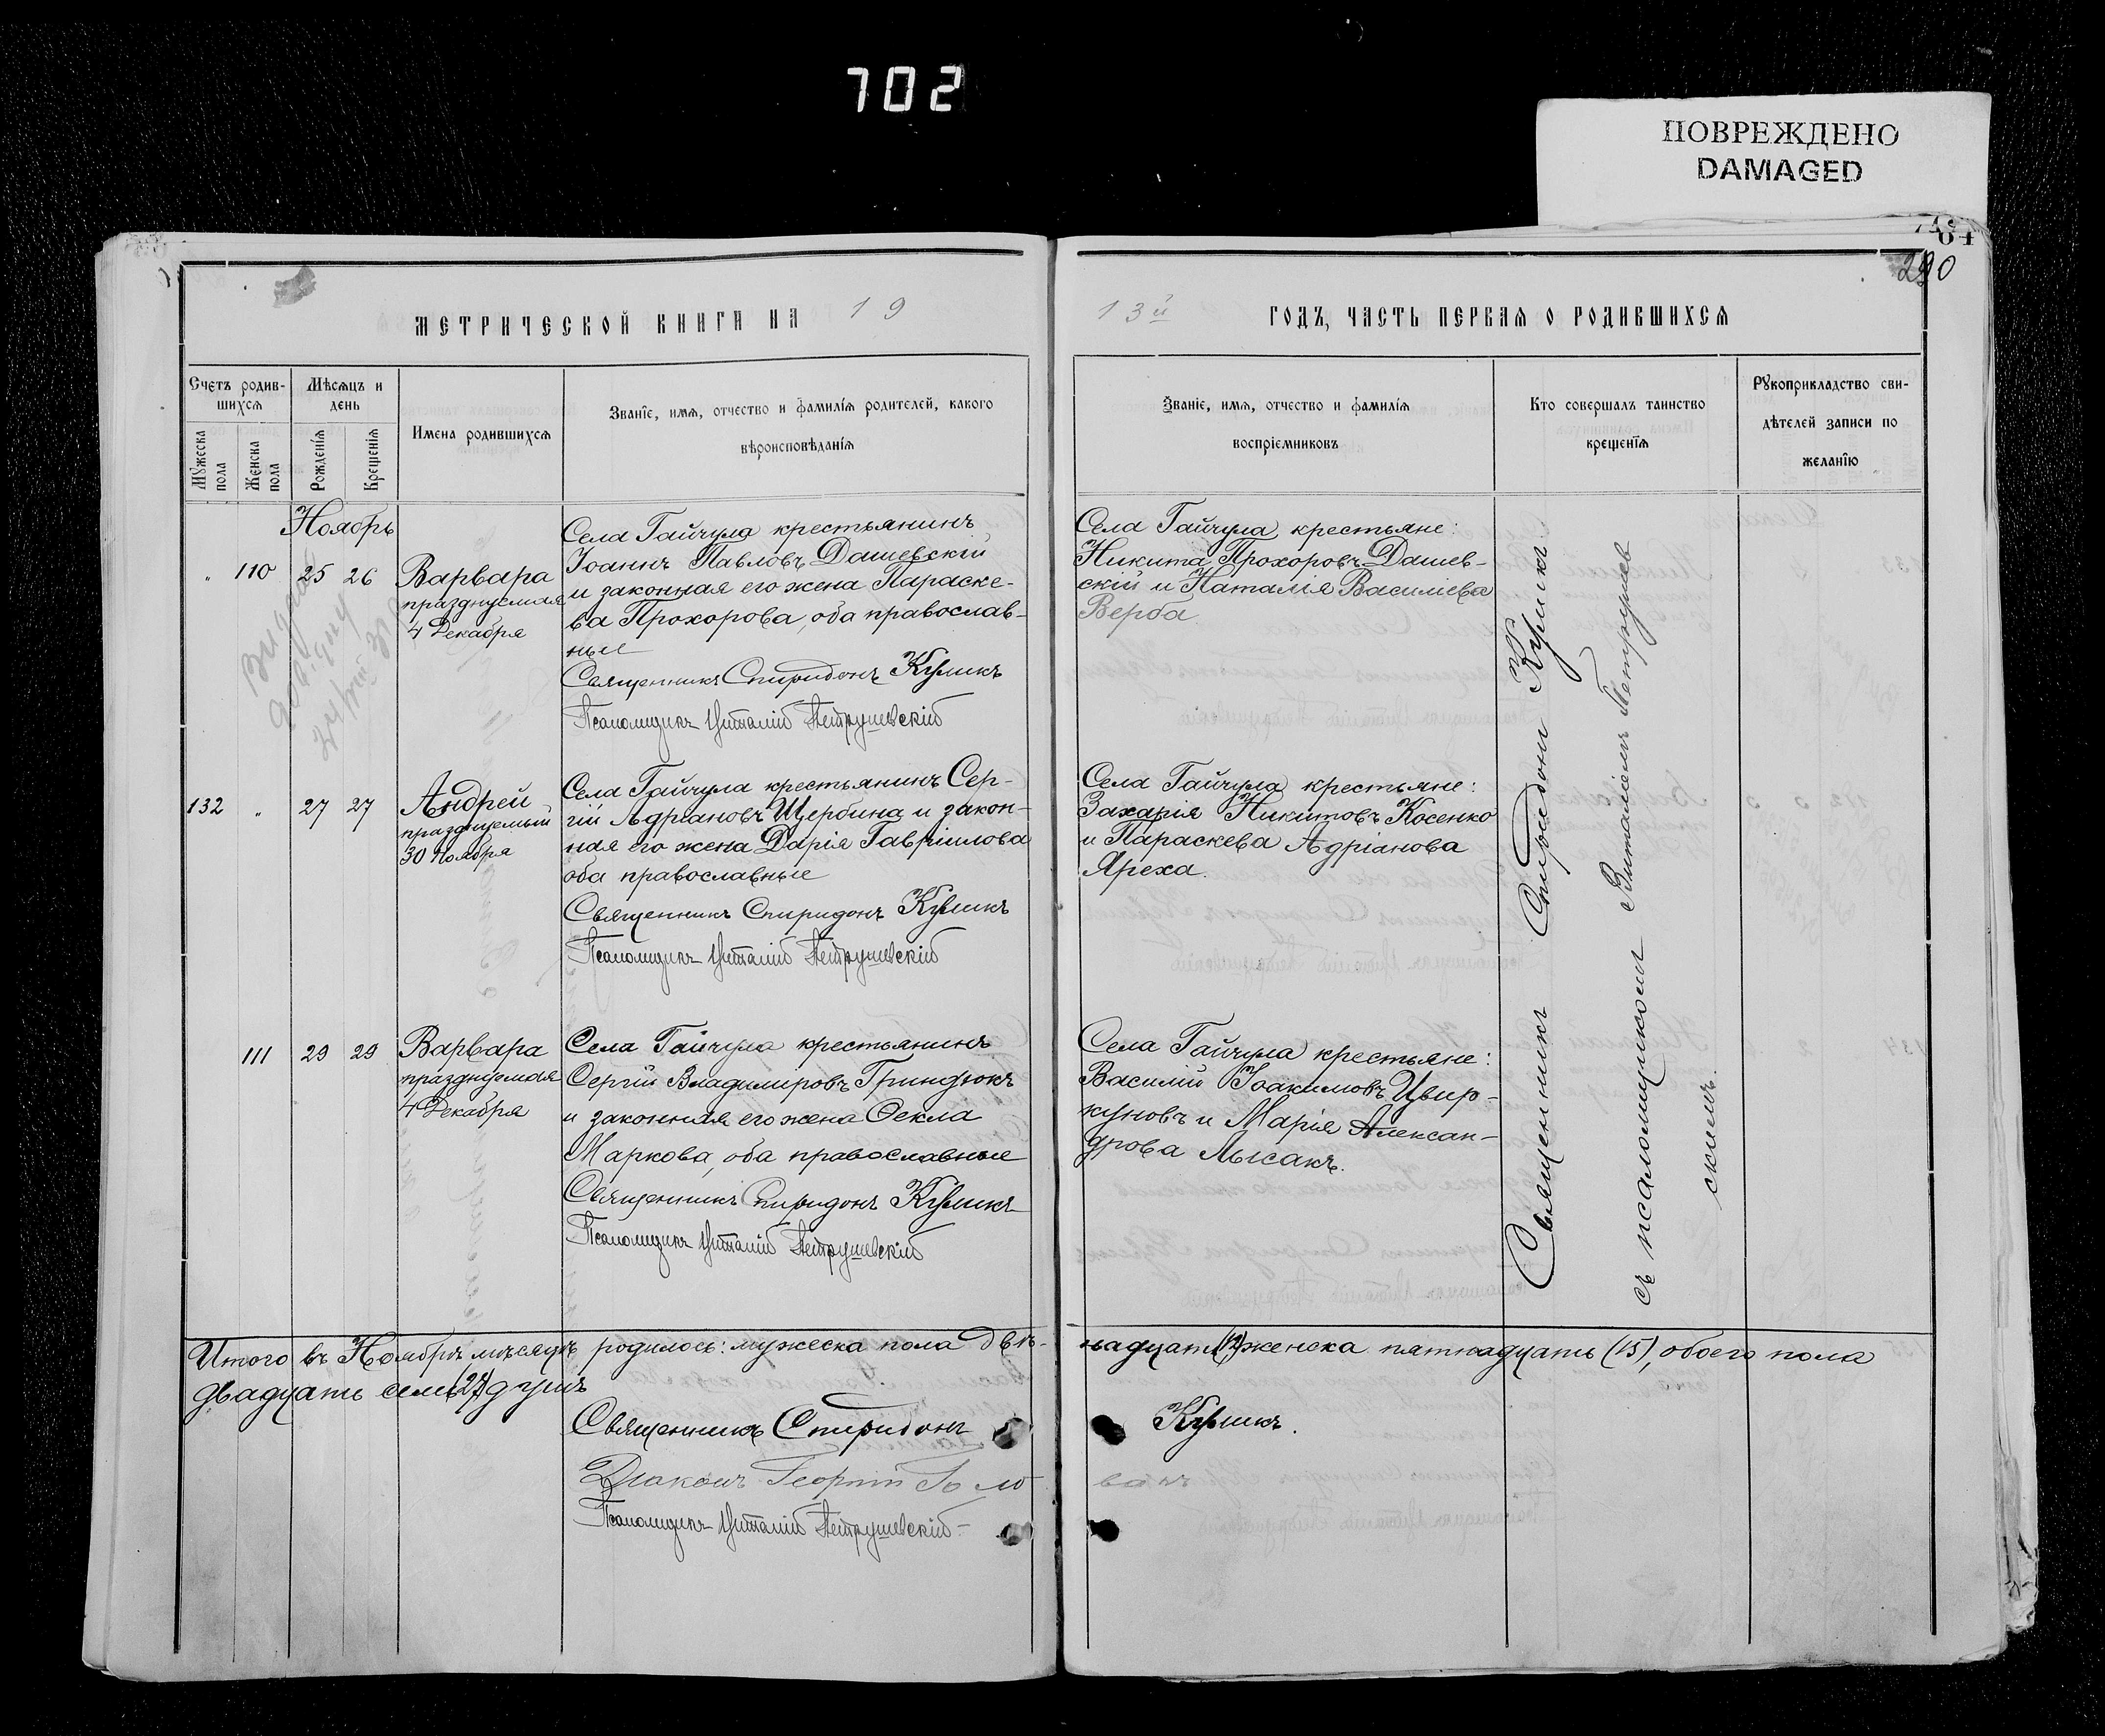 702
ПОВРЕЖДЕНО
DAMAGED
290
МЕТРИЧЕСКОЙ КНИГИ НА 19
13й ГОДЪ, ЧАСТЬ ПЕРВАЯ О РОДИВШИХСЯ
Счетъ родив-
шихся
Мужеска пола
Женска пола
Мѣсяцъ и
день
Рожденія
Крещенія
Имена родившихся
Званіе, имя, отчество и фамилія родителей, какого
вѣроисповѣданія
Званіе, имя, отчество и фамилія
воспріемниковъ
Кто совершалъ таинство
крещенія
Рукоприкладство сви-
дѣтелей записи по
желанію
Ноябрь
" 110 25 26
Варвара
празднуемая
4 Декабря
Села Гайчула крестьянинъ
Іоаннъ Павловъ Дашевскій
и законная его жена Параске-
ва Прохорова, оба православ-
ные
Священникъ Спиридонъ Куликъ
Псаломщикъ Виталій Петрушевскій
Села Гайчула крестьяне:
Никита Прохоровъ Дашев-
скій и Наталія Василіева
Верба
132 " 27 27
Андрей
празднуемый
30 Ноября
Села Гайчула крестьянинъ Сер-
гій Адріановъ Щербина и закон-
ная его жена Дарія Гавріилова
оба православные
Священникъ Спиридонъ Куликъ
Псаломщикъ Виталій Петрушевскій
Села Гайчула крестьяне:
Захарія Никитовъ Косенко
и Параскева Адріанова
Яреха.
111 29 29
Варвара
празднуемая
4 Декабря
Села Гайчула крестьянинъ
Сергій Владиміровъ Гриндюкъ
и законная его жена Ѳекла
Маркова, оба православные
Священникъ Спиридонъ Куликъ
Псаломщикъ Виталій Петрушевскій
Села Гайчула крестьяне:
Василій Іоакимовъ Цвир-
куновъ и Марія Алексан-
дрова Лысакъ.
Священникъ Спиридонъ Куликъ
съ псаломщикомъ Виталіемъ Петрушев
скимъ.
Итого въ Ноябрѣ мѣсяцѣ родилось: мужеска пола двѣ-
надцать (12) женска пятнадцать (15), обоего пола
двадцать семь (27) душъ
Священникъ Спиридонъ
Куликъ.
Діаконъ Георгій Голо
вакъ
Псаломщикъ Виталій Петрушевскій